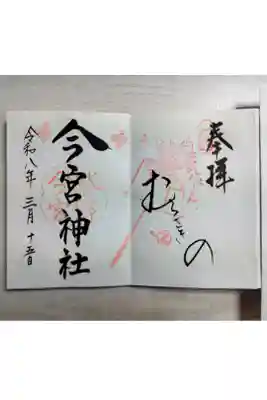 奉拝
むらさきの
今宮神社
令和八年三月十五日